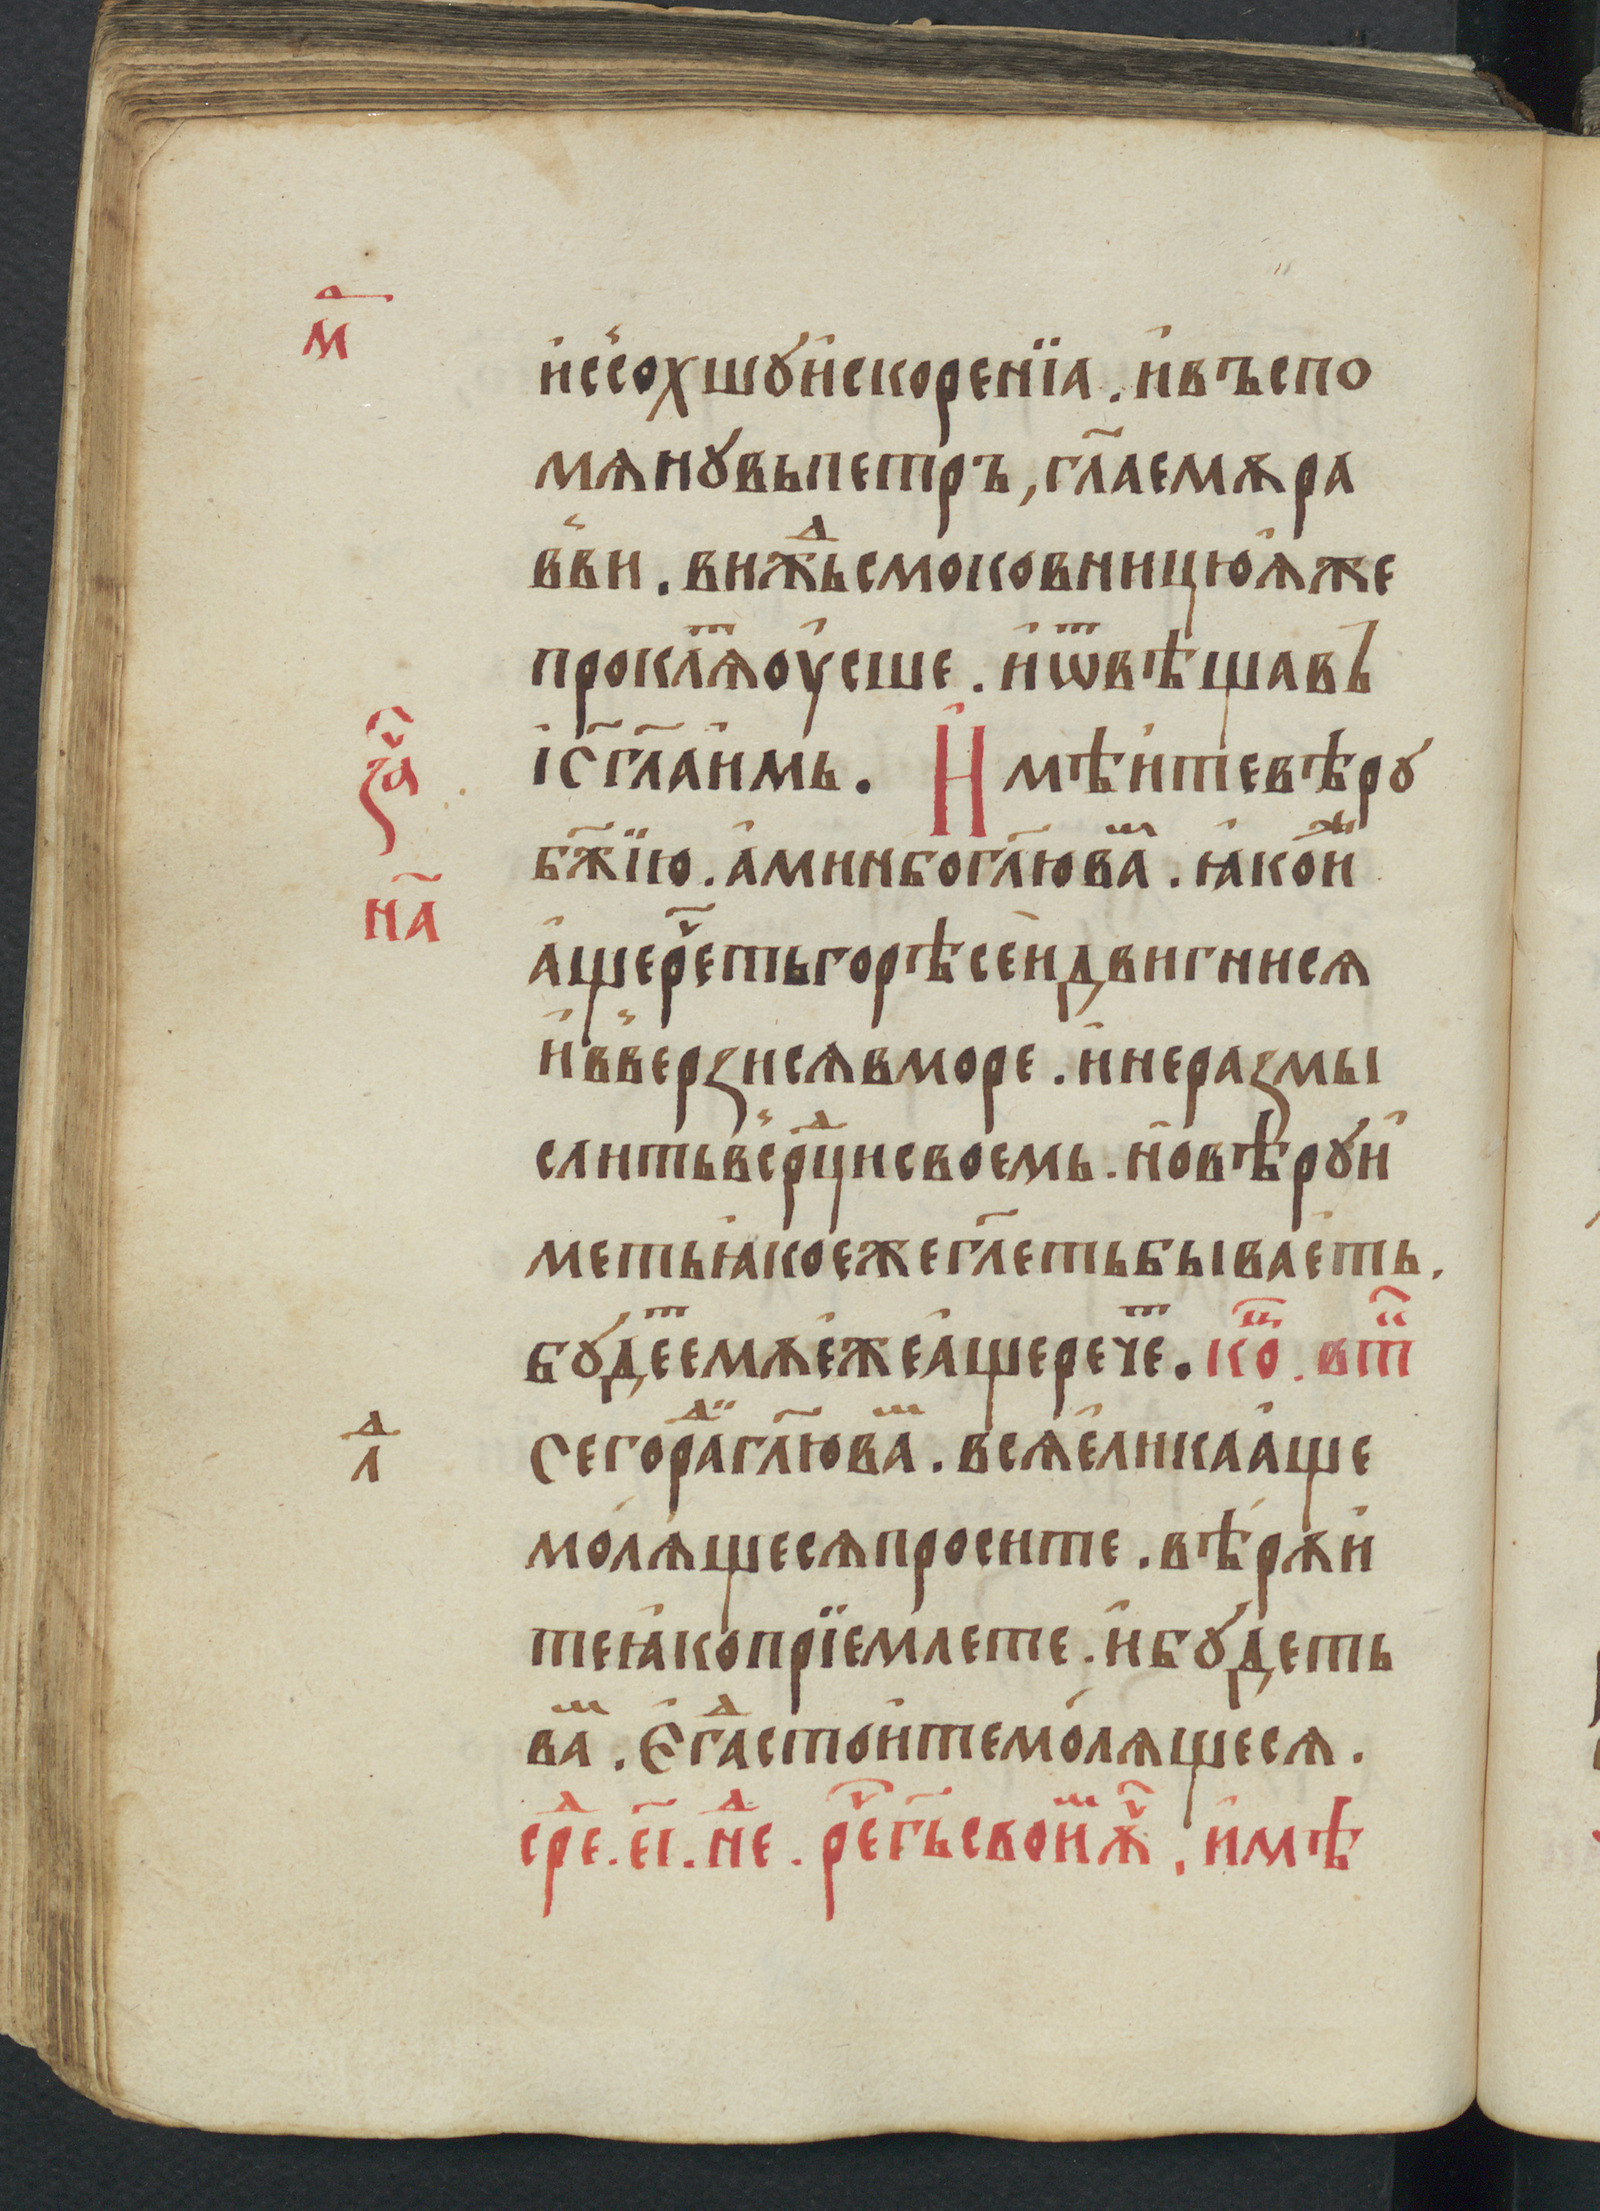 м҃ д
и҆ с̾сохшꙋ и҆с корениꙗ . и҆ въспо
мѧнꙋвь петръ , гл҃а емѫ ра
в̾ви . виждь смоковницю ꙗ҆же
проклѧⷮ оу҆сше . и҆ ѿвѣщавъ
і҆с҃ гл҃а и҆мь . И҆мѣите вѣрꙋ
заⷱ
б҃жїю . а҆минь бо гл҃ю ваⷨ . ꙗ҆ко иⷤ
на҃
а҆ще реⷱть горѣ сеи двигнисѧ
и҆ в̾верзисѧ в море . и҆ не размы
слить в̾ срⷣци своемь . но вѣрꙋ и҆
меть ꙗ҆ко еже гл҃еть бываеть .
бꙋдеⷮ емѫ е҆же а҆ще речеⷮ . коⷰ . втⷪ
л д
Сего раⷣи гл҃ю ваⷨ . всѧ е҆лика а҆ще
молѧщесѧ просите . вѣрѫи
те ꙗ҆ко прїемлете . и҆ бꙋдеть
ваⷨ . Є҆гⷣа стоите молѧщесѧ .
среⷣ . е҃і . неⷣ . реⷱ г҃ь своиⷨ ѫⷱ . и҆мѣ